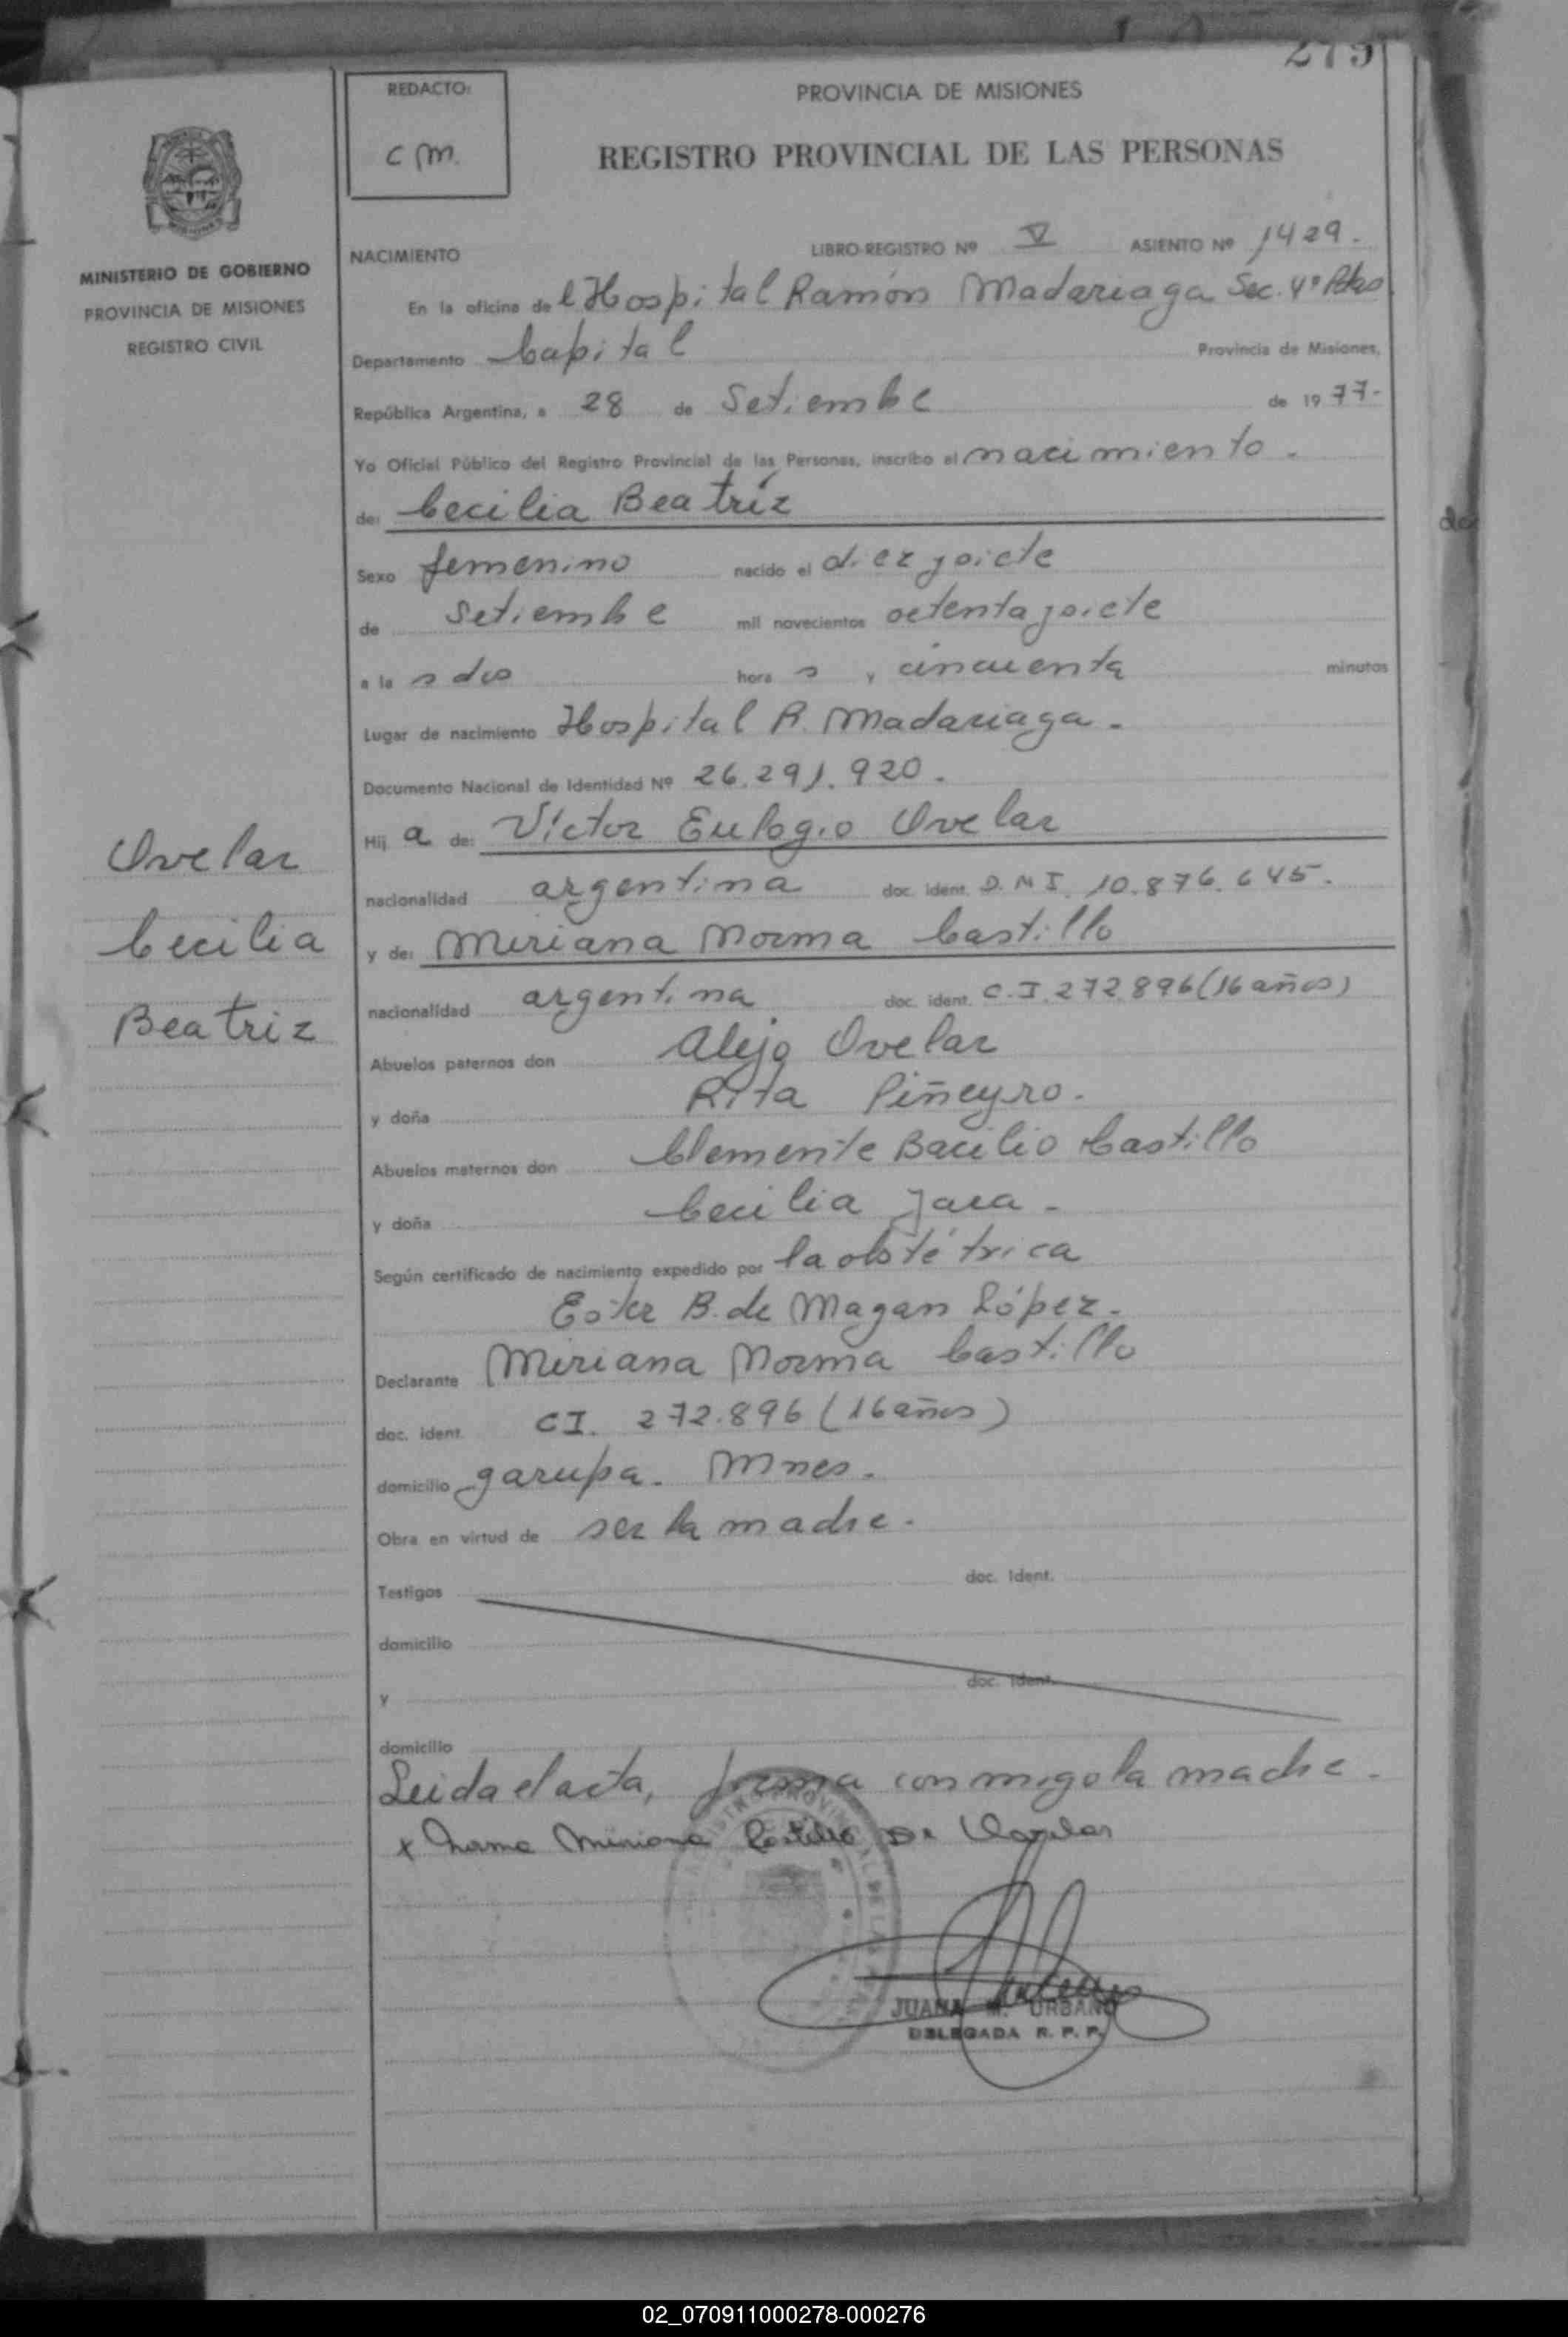 275
REDACTO:
C M.
PROVINCIA DE MISIONES
REGISTRO PROVINCIAL DE LAS PERSONAS
MINISTERIO DE GOBIERNO
PROVINCIA DE MISIONES
REGISTRO CIVIL
NACIMIENTO LIBRO-REGISTRO Nº V ASIENTO Nº 1429.
En la oficina del Hospital Ramón Madariaga Sec. 4ª Pdas
Departamento Capital Provincia de Misiones,
República Argentina, a 28 de Setiembre de 1977-
Yo Oficial Público del Registro Provincial de las Personas, inscribo el nacimiento.
de: Cecilia Beatríz
Sexo femenino nacido el diez y siete
de Setiembre mil novecientos setenta y siete
a las dos horas y cincuenta minutos
Lugar de nacimiento Hospital R. Madariaga.
Documento Nacional de Identidad Nº 26.291.920.
Hija de: Víctor Eulogio Ovelar
nacionalidad argentina doc. ident. D.N.I. 10.876.645.
y de: Miriana Norma Castillo
nacionalidad argentina doc. ident. C.I. 272.896 (16 años)
Abuelos paternos don Alejo Ovelar
y doña Rita Piñeyro.
Abuelos maternos don Clemente Bacilio Castillo
y doña Cecilia Jara.
Según certificado de nacimiento expedido por la obstétrica
Ester B. de Magan López.
Declarante Miriana Norma Castillo
doc. ident. CI. 272.896 (16 años)
domicilio Garupa. Mnes.
Obra en virtud de ser la madre.
Testigos doc. Ident.
domicilio
y doc. Ident.
domicilio
Leida el acta, firma conmigo la madre.
x Norma Miriana Castillo De Ovelar
JUANA M. URBANO
DELEGADA R. P. P.
Ovelar
Cecilia
Beatriz
do
02_070911000278-000276